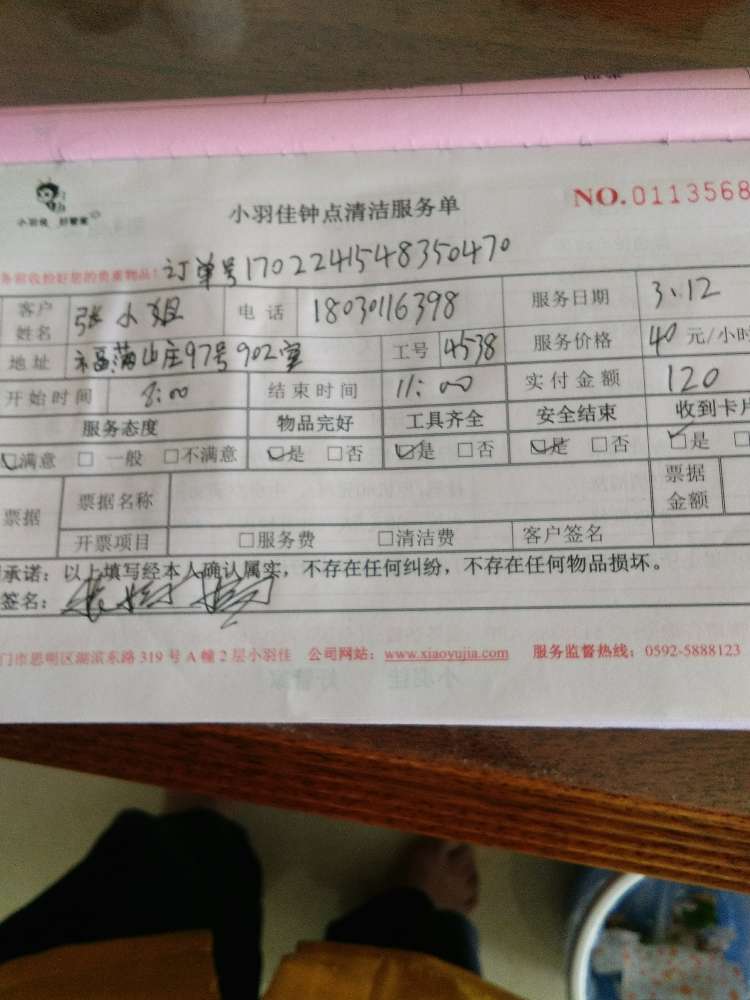 小羽佳 好管家
小羽佳钟点清洁服务单
NO.0113568
务前收检好您的贵重物品!
订单号1702241548350470
客户姓名 张小姐 电话 18030116398 服务日期 3.12
地址 福满山庄97号902室 工号 4538 服务价格 40 元/小时
开始时间 8:00 结束时间 11:00 实付金额 120
服务态度 物品完好 工具齐全 安全结束 收到卡片
☑满意 □一般 □不满意 ☑是 □否 ☑是 □否 ☑是 □否 ☑是 □
票据 票据名称 票据金额
开票项目 □服务费 □清洁费 客户签名
承诺：以上填写经本人确认属实，不存在任何纠纷，不存在任何物品损坏。
签名：
门市思明区湖滨东路319号A幢2层小羽佳 公司网站：www.xiaoyujia.com 服务监督热线：0592-5888123